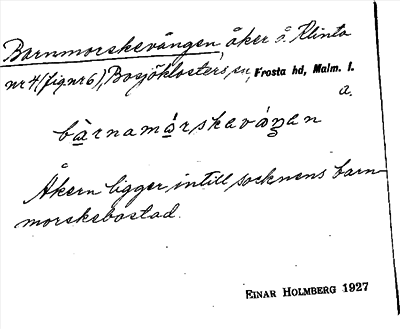 Barnmorskevången, åker å Klinta
nr 4 (fig nr 6), Bosjöklosters sn, Frosta hd, Malm. l.
a.
bàrnamárskaváŋen
Åkern ligger intill socknens barn-
morskebostad.
EINAR HOLMBERG 1927